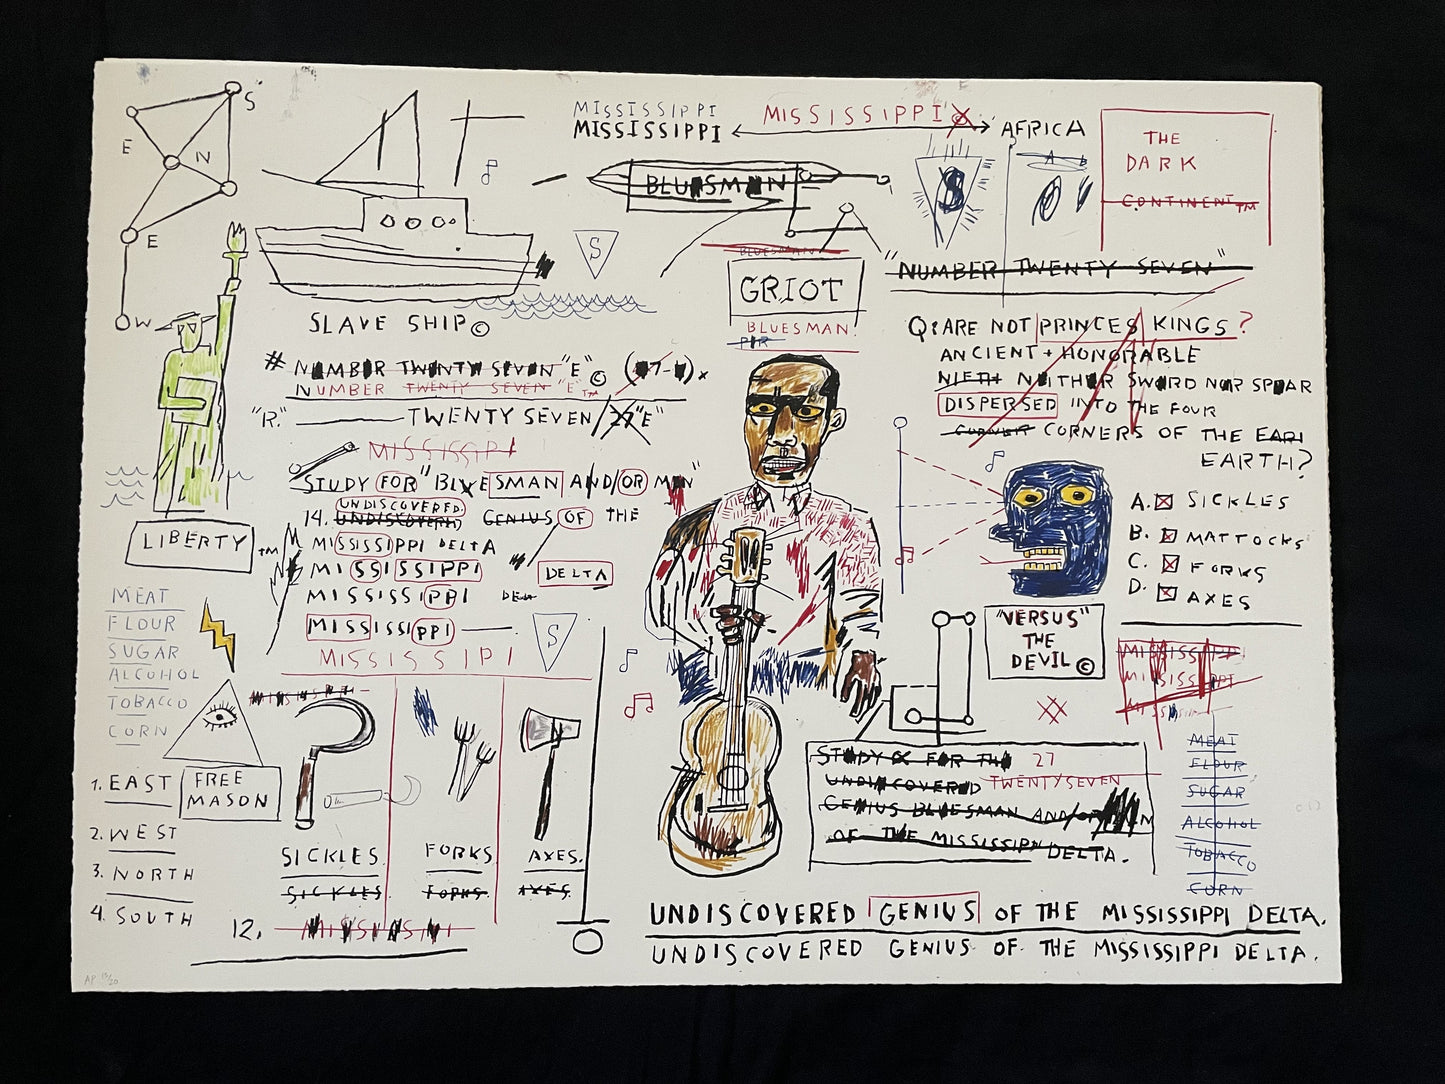 S
E
N
E
W
MISSISSIPPI
MISSISSIPPI
MISSISSIPPI
AFRICA
THE
DARK
CONTINENT TM
BLUESMAN
S
S
A
B
BLUESMAN
GRIOT
BLUESMAN
"NUMBER TWENTY SEVEN"
SLAVE SHIP ©
# NUMBER TWENTY SEVEN "E" ©
NUMBER TWENTY SEVEN "E" TM
"R." TWENTY SEVEN/27 "E"
MISSISSIPI
STUDY FOR "BLUESMAN AND/OR MAN"
UNDISCOVERED
14. UNDISCOVERD GENIUS OF THE
MISSISSIPPI DELTA
MISSISSIPPI
DELTA
MISSISSIPPI DELTA
MISSISSIPPI
S
MISSISSIPI
LIBERTY TM
MEAT
FLOUR
SUGAR
ALCOHOL
TOBACCO
CORN
FREE
MASON
1. EAST
2. WEST
3. NORTH
4. SOUTH
SICKLES.
SICKLES
FORKS
FORKS
AXES.
AXES.
12.
Q: ARE NOT PRINCES KINGS?
ANCIENT + HONORABLE
NIETH NEITHER SWORD NOR SPEAR
DISPERSED INTO THE FOUR
CORNER CORNERS OF THE EARI
EARTH?
A. SICKLES
B. MATTOCKS
C. FORKS
D. AXES
"VERSUS"
THE
DEVIL ©
MISSISSIPPI
MISSISSIPPI
MEAT
FLOUR
SUGAR
ALCOHOL
TOBACCO
CORN
STUDY FOR THE 27
UNDISCOVERED TWENTYSEVEN
GENIUS BLUESMAN AND/OR
OF THE MISSISSIPPI DELTA.
UNDISCOVERED GENIUS OF THE MISSISSIPPI DELTA.
UNDISCOVERED GENIUS OF THE MISSISSIPPI DELTA.
AP 15/20